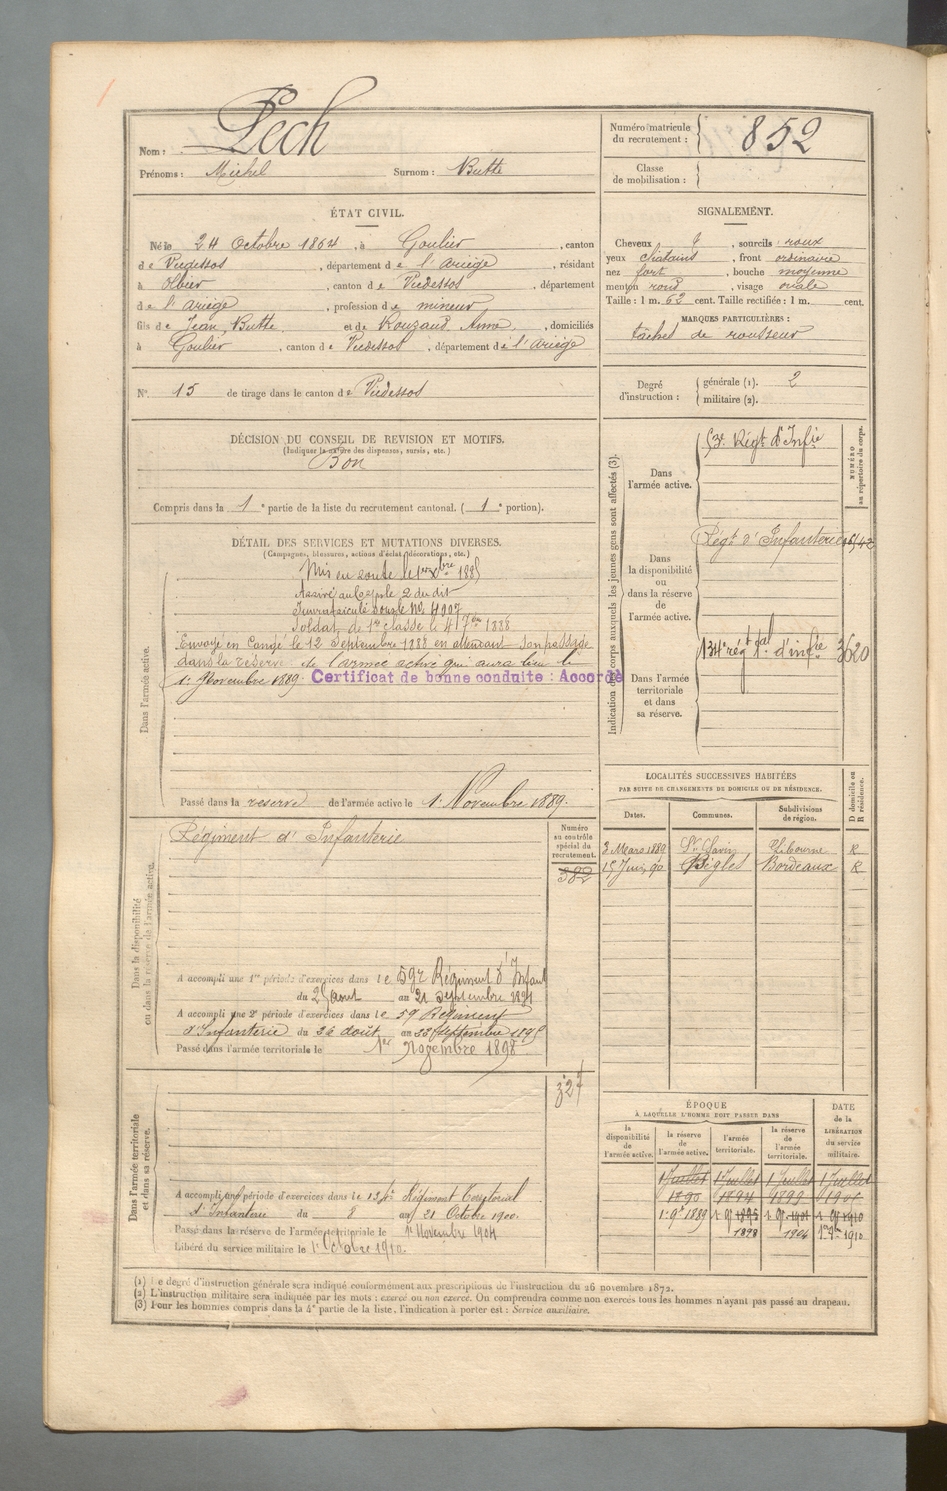 Nom : Pech
Prénoms : Michel Surnom : Butte
Numéro matricule du recrutement : 852
Classe de mobilisation :
ÉTAT CIVIL.
Né le 24 Octobre 1864, à Goulier, canton
de Vicdessos, département de l'ariège, résidant
à Olbier, canton de Vicdessos, département
de l'ariège, profession de mineur
fils de Jean, Butte et de Rouzaud Anna, domiciliés
à Goulier, canton de Vicdessos, département de l'ariège
SIGNALEMENT.
Cheveux, sourcils roux
yeux chatains, front ordinaire
nez fort, bouche moyenne
menton rond, visage ovale
Taille : 1 m. 62 cent. Taille rectifiée : 1 m. cent.
MARQUES PARTICULIÈRES :
tâches de rousseur
N° 15 de tirage dans le canton de Vicdessos
Degré d'instruction : générale (1). 2
militaire (2).
DÉCISION DU CONSEIL DE REVISION ET MOTIFS.
(Indiquer la nature des dispenses, sursis, etc.)
Bon
Compris dans la 1e partie de la liste du recrutement cantonal. (1e portion).
DÉTAIL DES SERVICES ET MUTATIONS DIVERSES.
(Campagnes, blessures, actions d'éclat, décorations, etc.)
Dans l'armée active.
Mis en route le 1er Xbre 1885
Arrivé au Corps le 2 du dit
Immatriculé sous le No 4107
Soldat de 1re classe le
Envoyé en Congé le 12 Septembre 1888 en attendant son passage
dans la réserve de l'armée active qui aura lieu le
1er Novembre 1889. Certificat de bonne conduite : Accordé
Passé dans la reserve de l'armée active le 1er Novembre 1889.
Indication des corps auxquels les jeunes gens sont affectés (3).
NUMÉRO au répertoire du corps.
Dans l'armée active.
Régt d'Infie
Dans la disponibilité ou dans la réserve de l'armée active.
Régt d'Infanterie
Dans l'armée territoriale et dans sa réserve.
134e régt tal d'infie 3620
LOCALITÉS SUCCESSIVES HABITÉES
PAR SUITE DE CHANGEMENTS DE DOMICILE OU DE RÉSIDENCE.
Dates. Communes. Subdivisions de région. D domicile ou R résidence.
3 Mars 1889 St Savin Libourne R
15 Juin 90 Bègles Bordeaux R
Dans la disponibilité ou dans la réserve de l'armée active.
Régiment d'Infanterie
Numéro au contrôle spécial du recrutement.
382
A accompli une 1re période d'exercices dans le 59e Régiment d'Infant
du 25 aout au 21 septembre 1891
A accompli une 2e période d'exercices dans le 59 Régiment
d'Infanterie du 26 août au 22 Septembre 1895
Passé dans l'armée territoriale le 1er Novembre 1898
Dans l'armée territoriale et dans sa réserve.
327
A accompli une période d'exercices dans le 134e Régiment Territorial
d'Infanterie du 8 au 21 Octobre 1900.
Passé dans la réserve de l'armée territoriale le 1er Novembre 1904
Libéré du service militaire le 1er Octobre 1910.
ÉPOQUE
À LAQUELLE L'HOMME DOIT PASSER DANS
DATE de la LIBÉRATION du service militaire.
la disponibilité de l'armée active. la réserve de l'armée active. l'armée territoriale. la réserve de l'armée territoriale.
1 Juillet 1 Juillet 1 Juillet 1 Juillet
1890 1894 1899 1905
1er 9e 1889 1 9e 1895 1 9e 1901 1 9e 1910
1898 1904 1er 9e 1910
(1) Le degré d'instruction générale sera indiqué conformément aux prescriptions de l'instruction du 26 novembre 1872.
(2) L'instruction militaire sera indiquée par les mots : exercé ou non exercé. On comprendra comme non exercés tous les hommes n'ayant pas passé au drapeau.
(3) Pour les hommes compris dans la 4e partie de la liste, l'indication à porter est : Service auxiliaire.